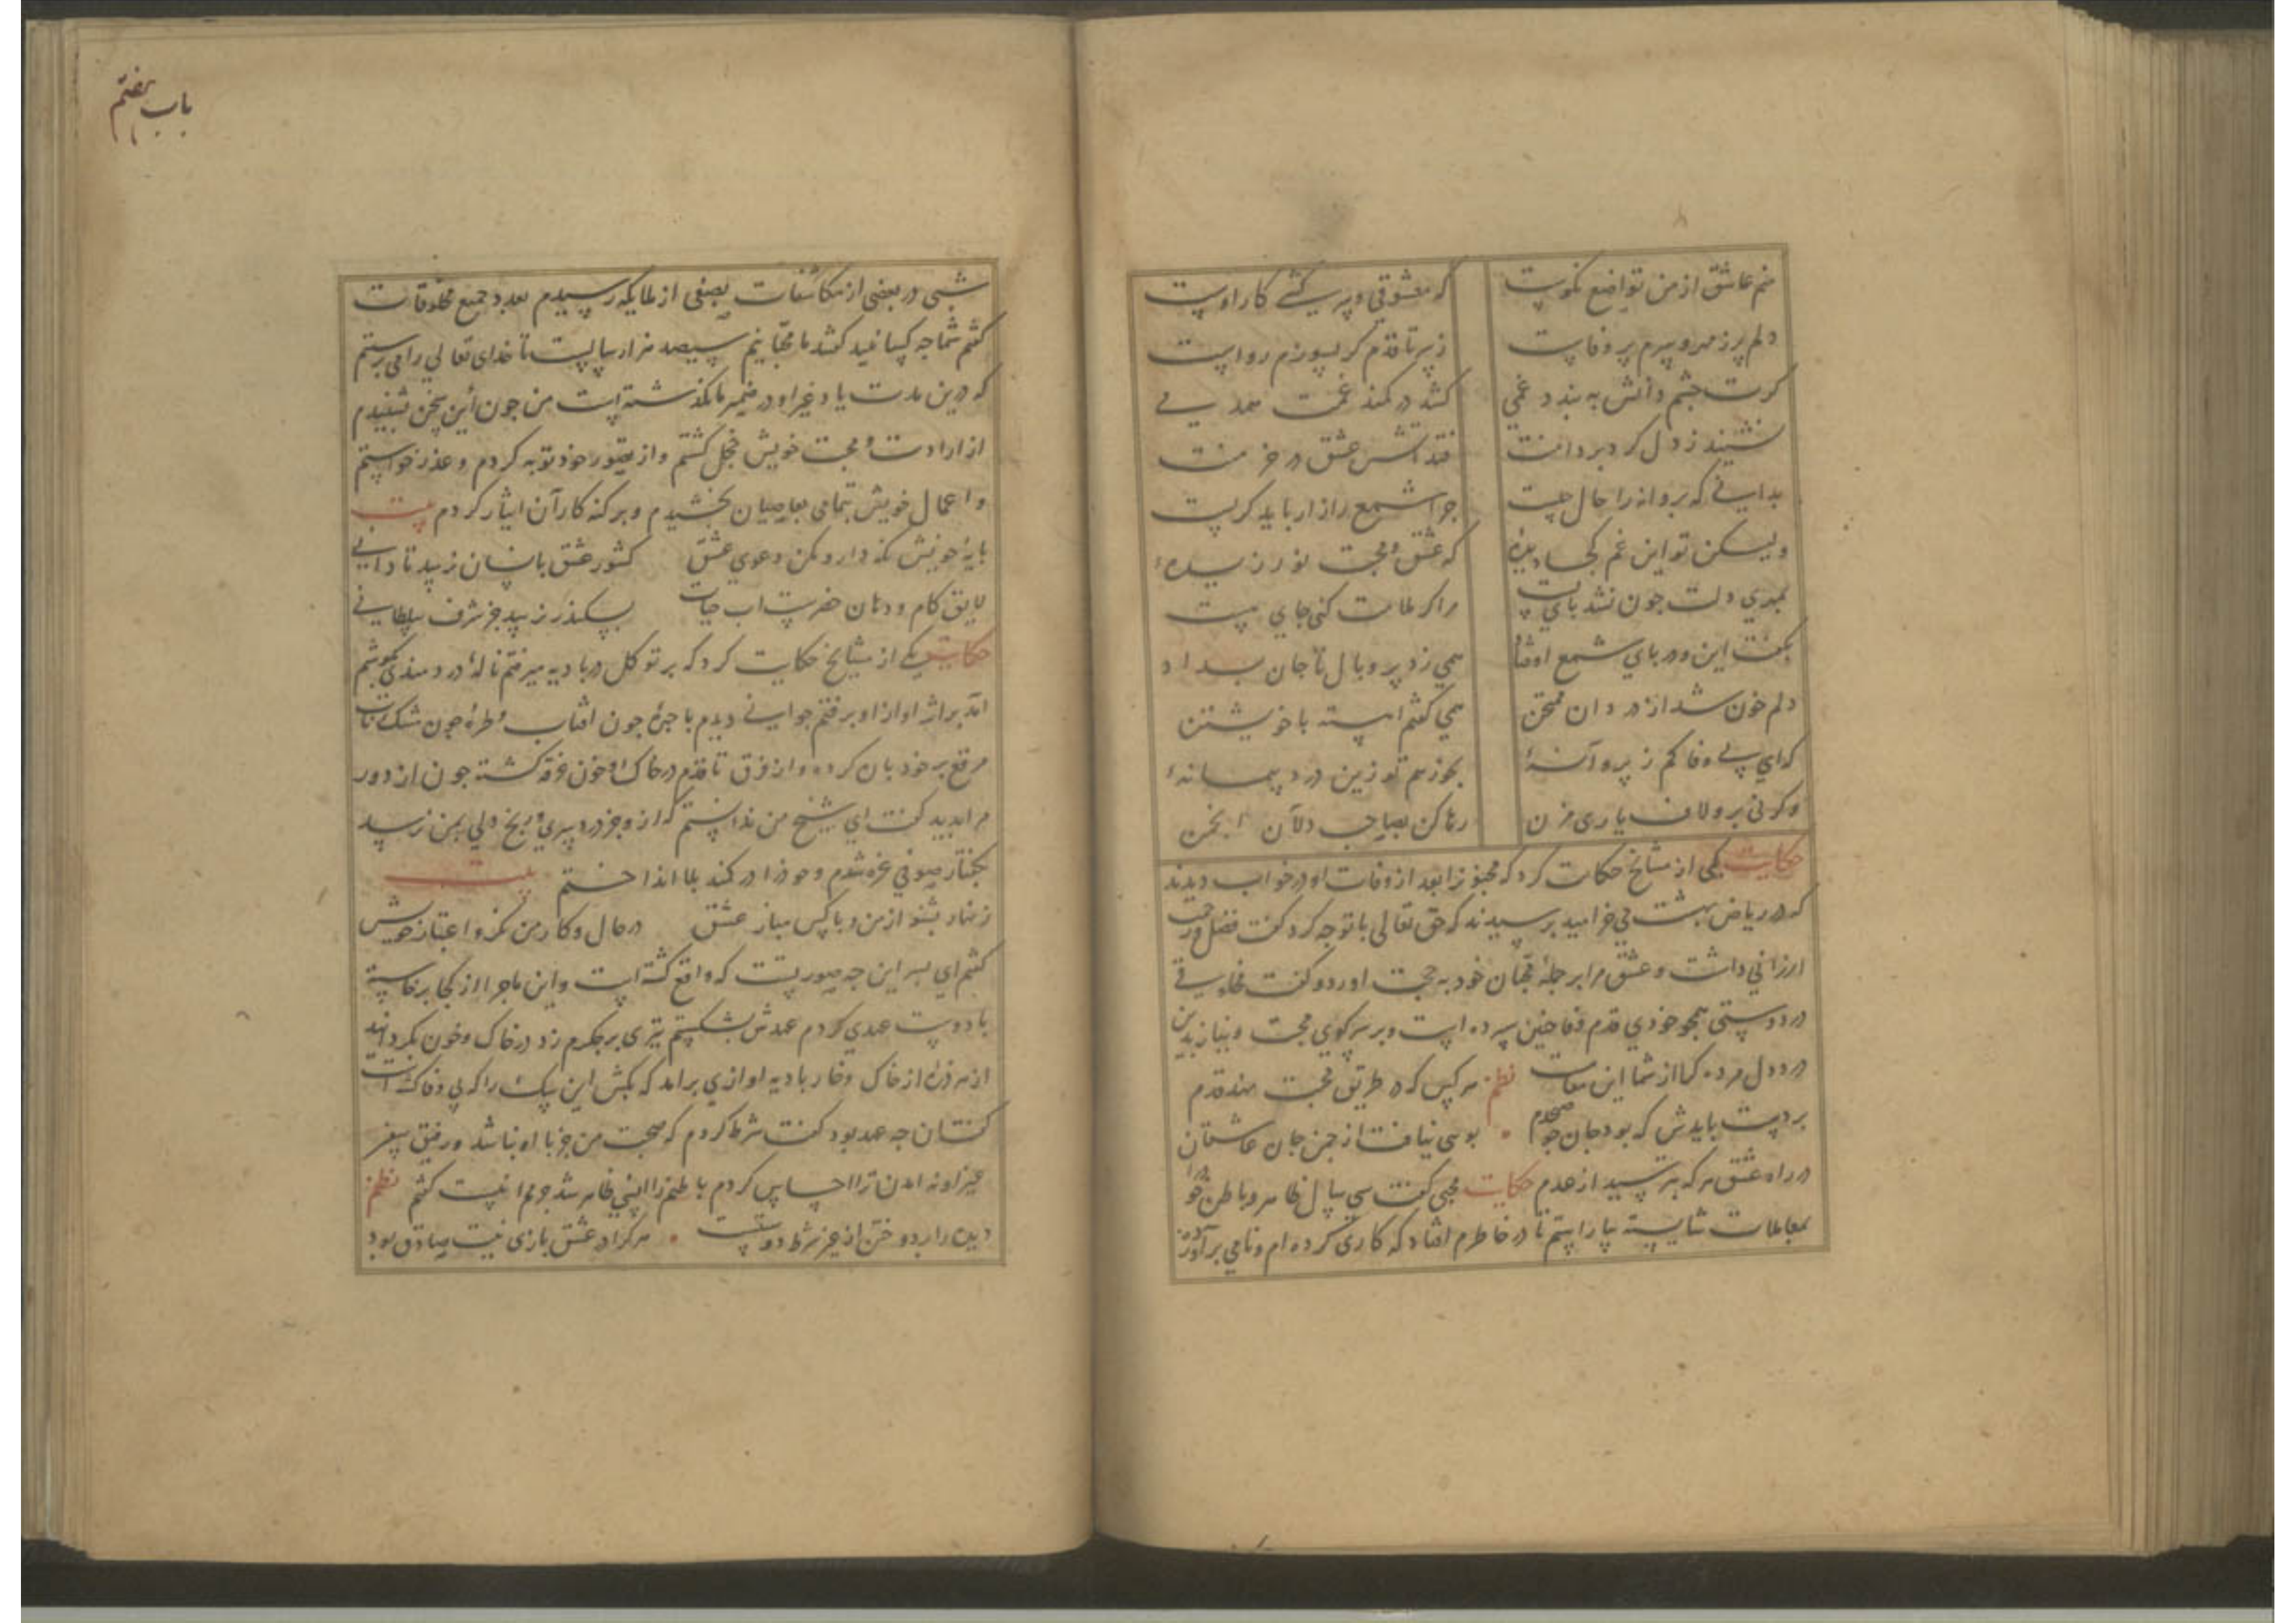 منم عاشق از من تواضع نکوست که معشوقی و پر کشی کار اوست
دلم پر ز مهر و سرم پر وفاست ز سر تا قدم گر بسوزم رواست
کرت چشم دانش به بندد غمی کشد در کمند غمت همدمی
نشیند ز دل کرد بر دامنت فتد آتش عشق در خرمنت
بدانی که پروانه را حال چیست چرا شمع را زار باید کریست
ولیکن تو این غم کجا دیدهٔ که عشق و محبت نورزیدهٔ
دلت چون نشد پای بست مرا کر ملامت کنی جای هست
بگفت این و در پای شمع اوفتاد همی زد پر و بال تا جان بداد
دلم خون شد از درد آن ممتحن همی گفتم آهسته با خویشتن
که ای بی وفا کم ز پروانهٔ بخور هم تو زین درد پیمانهٔ
وکرنی برو لاف یاری مزن رها کن بصاحب دلان انجمن
حکایت یکی از مشایخ حکایت کرد که مجنون را بعد از وفات او در خواب دیدند
که در ریاض بهشت می خرامید پرسیدند که حق تعالی با تو چه کرد گفت فضل و رحمت
ارزانی داشت و عشق مرا بر جملهٔ محبان خود به حجت آورد و گفت مخلوقی
در دوستی همچو خودی قدم وفا چنین سپرده است و بر سر کوی محبت و نیاز بدین
درد دل مرده کرا از شما این مقامست نظم هر کس که در طریق محبت نهد قدم
بر دست بایدش که بود جان صبحدم بویی نیافت از چمن جان عاشقان
در راه عشق هر که بترسید از عدم حکایت محبی گفت سی سال ظاهر و باطن خود را
بمعاملات شایسته بیاراستم تا در خاطرم افتاد که کاری کرده ام و نامی برآورده
باب هفتم
شبی در بعضی از مکاشفات بصفی از ملایکه رسیدم بعدد جمیع مخلوقات
گفتم شما چه کسانید گفتند ما محبانیم سیصد هزار سالست تا خدای تعالی را می پرستیم
که درین مدت یاد غیر او در ضمیر ما نگذشته است من چون این سخن شنیدم
از ارادت و محبت خویش خجل گشتم و از قصور خود توبه کردم و عذر خواستم
و اعمال خویش بتمامی بعاصیان بخشیدم و بر گنه کاران ایثار کردم بیت
پایهٔ خویش نگه دار و مکن دعوی عشق کشور عشق باسان نرسد تا دانی
لایق کام و دهان خضرست آب حیات بسکندر نرسد جز شرف سلطانی
حکایت یکی از مشایخ حکایت کرد که بر توکل در بادیه میرفتم نالهٔ دردمندی بگوشم
آمد بر اثر آواز او برفتم جوانی دیدم با چهرهٔ چون آفتاب و طرهٔ چون مشک ناب
مرقع بر خود پاره کرده و از فرق تا قدم در خاک و خون غرقه گشته چون از دور
مرا بدید گفت ای شیخ من ندانستم که از وجز درد سری و رنج دلی بمن نرسد
بگفتار صوفی غره شدم و خود را در کمند بلا انداختم بیت
زنهار بشنو از من و با کس مباز عشق در حال و کار من نگر و اعتبار خویش
گفتم ای پسر این چه صورتست که واقع گشته است و این ماجرا از کجا برخاسته
با دوست عهدی کردم عهدش بشکستم تیری بر جگرم زد در خاک و خون بگردانید
از هر ذره از خاک و خار بادیه آوازی برآمد که بکش این سگ را که بی وفاست
گفتم آن چه عهد بود گفت شرط کردم که صحبت من جز با او نباشد و رفیق سفر
غیر او نه آمدن ترا احساس کردم باطنم را انسی ظاهر شد جرمم اینست گفتم نظم
دیده را بردوختن از غیر شرط دوستیست هر که را در عشق بازی نیت صادق بود